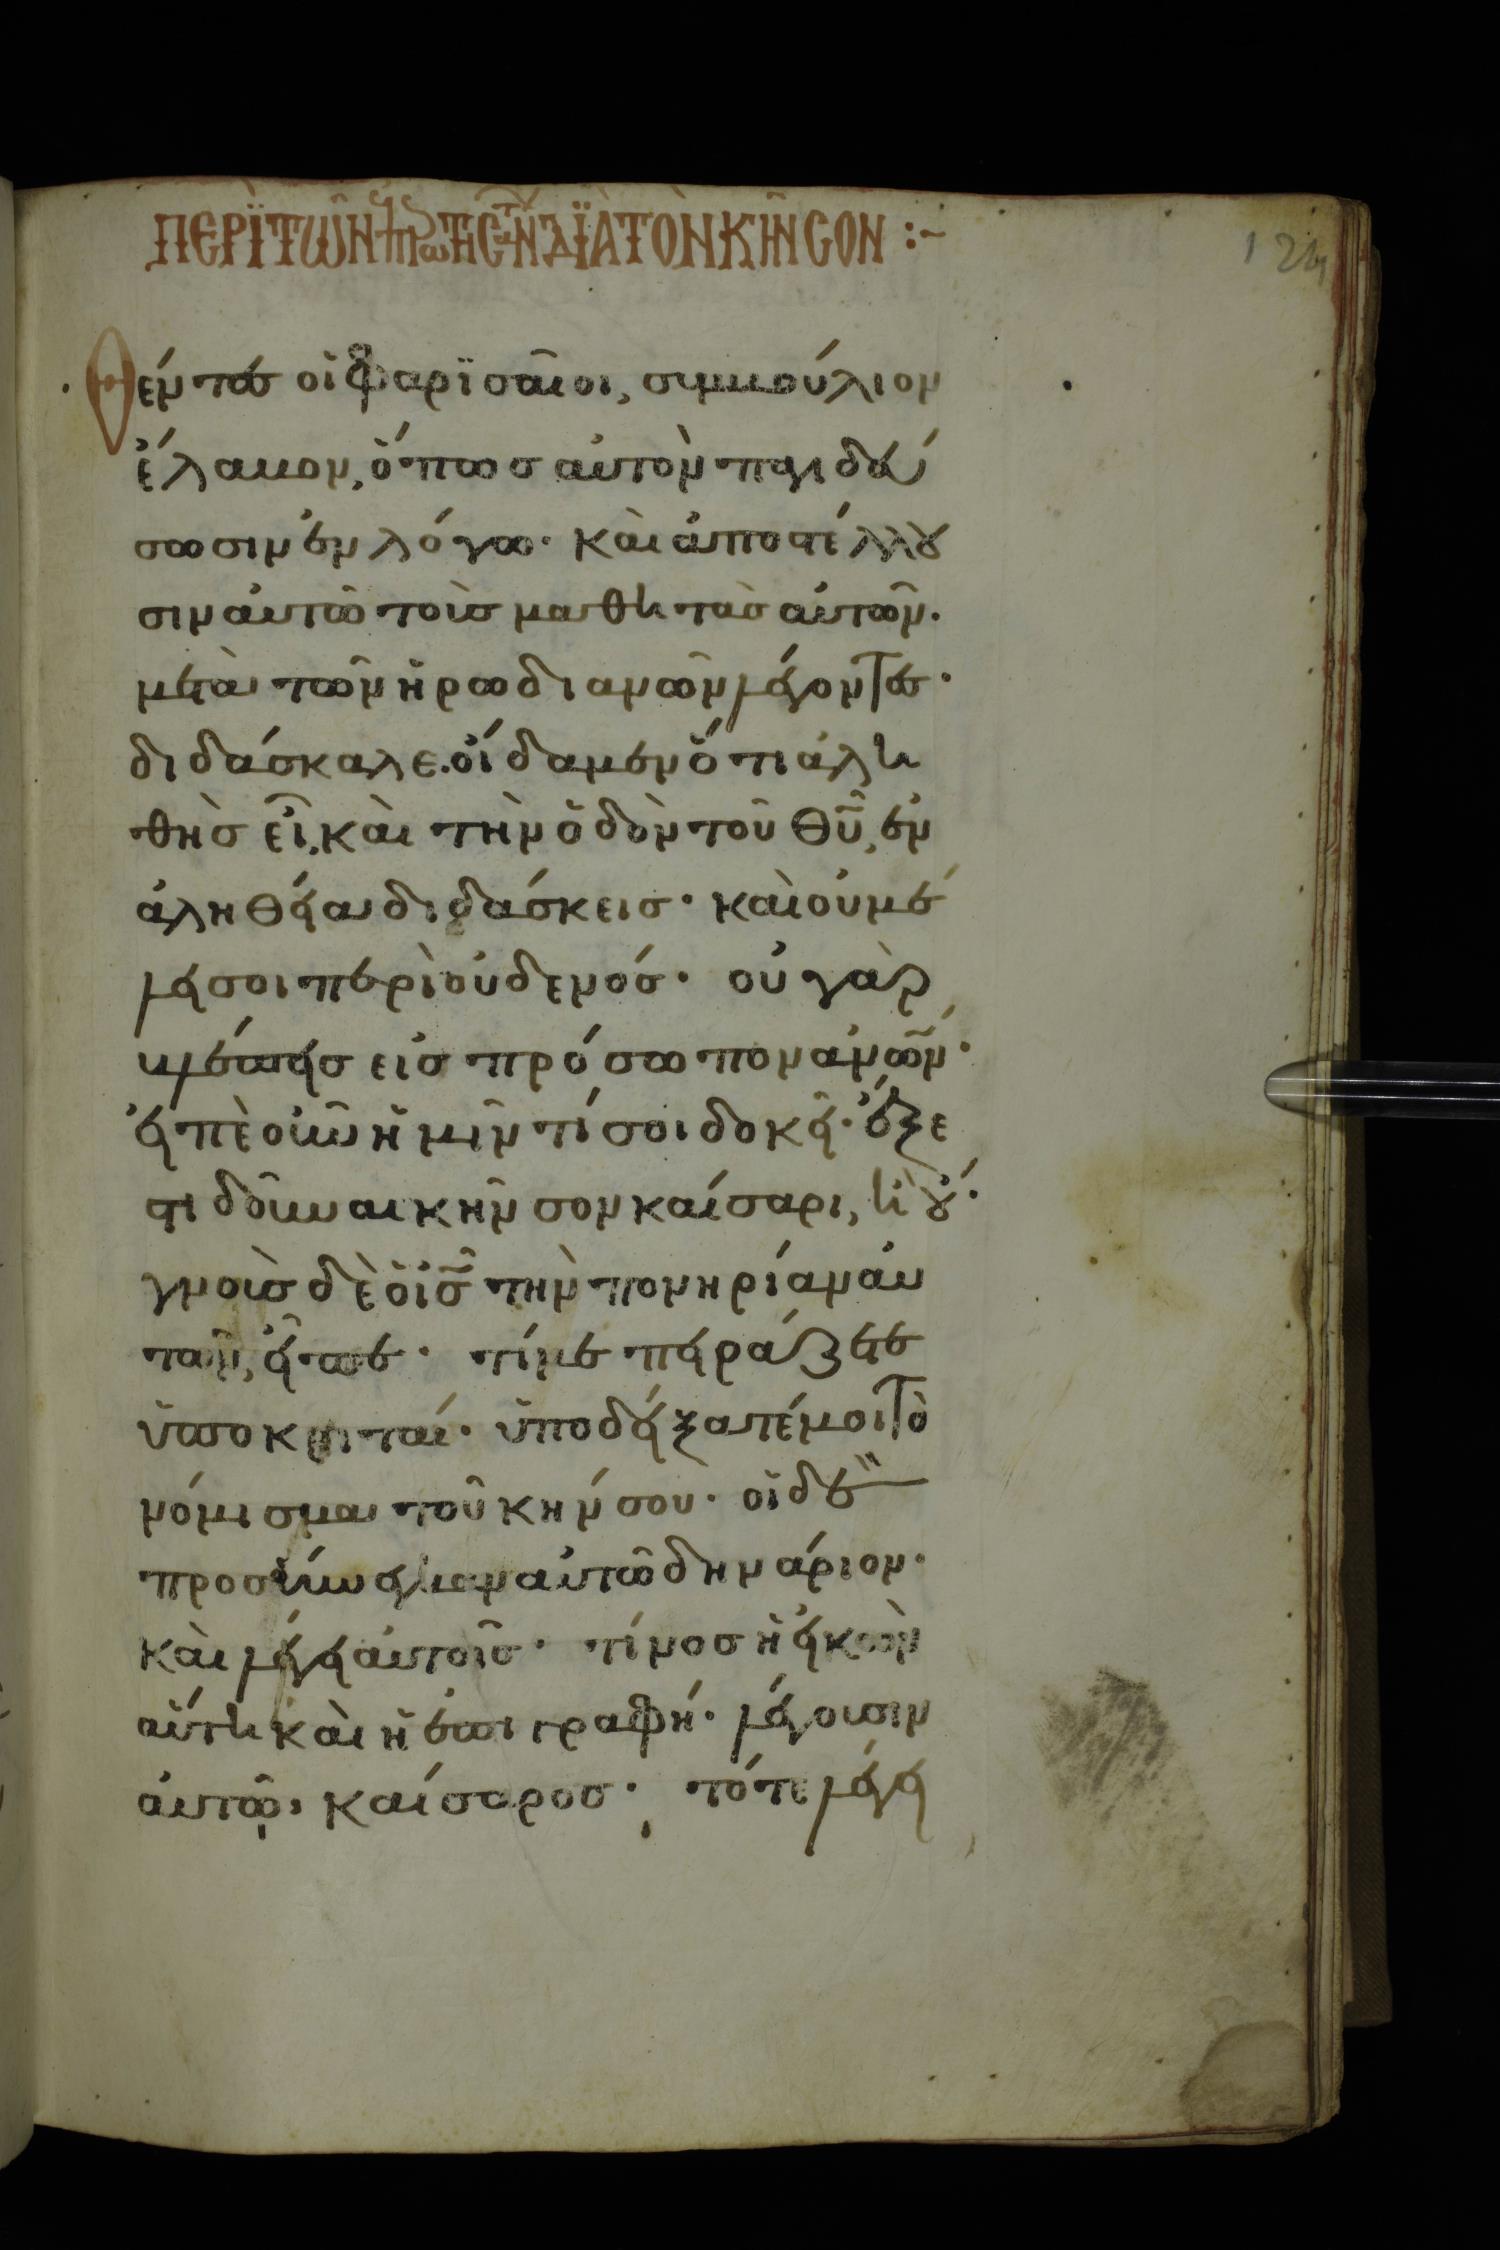 ΠΕΡῚ ΤΩ̂Ν ἘΠΕΡΩΤΗΣΆΝΤΩΝ ΔΙᾺ ΤῸΝ ΚΗ̂ΝΣΟΝ :~
124
θέντες οἱ φαρϊσαῖοι, συμβούλιον
ἔλαβον, ὅπως αὐτὸν παγιδεύ
σωσιν ἐν λόγω· καὶ ἀποστέλλου
σιν αὐτῶ τοὺς μαθητὰς αὐτῶν.
μετὰ τῶν ἡρωδιανῶν λέγοντες·
διδάσκαλε. οἴδαμεν ὅτι ἀλη
θὴς εἶ, καὶ τὴν ὁδὸν τοῦ θῦ, ἐν
ἀληθεία διδάσκεις· καὶ οὐ μέ
λει σοι περὶ οὐδενός· οὐ γὰρ
βλέπεις εἰς πρόσωπον ἀνῶν·
εἰπὲ οὖν ἡμῖν τί σοι δοκεῖ· ἔξε
στι δοῦναι κῆνσον καίσαρι, ἢ οὔ·
γνοὺς δὲ ὁ ἰς τὴν πονηρίαν αὐ
τῶν, εἶπε· τί με πειράζετε
ὑποκριταί· ὑποδείξατέ μοι τὸ
νόμισμα τοῦ κήνσου· οἱ δὲ
προσήνεγκαν αὐτῶ δηνάριον·
καὶ λέγει αὐτοῖς· τίνος ἡ εἰκὼν
αὕτη καὶ ἡ ἐπιγραφή· λέγουσιν
αὐτῶ, καίσαρος· τότε λέγει